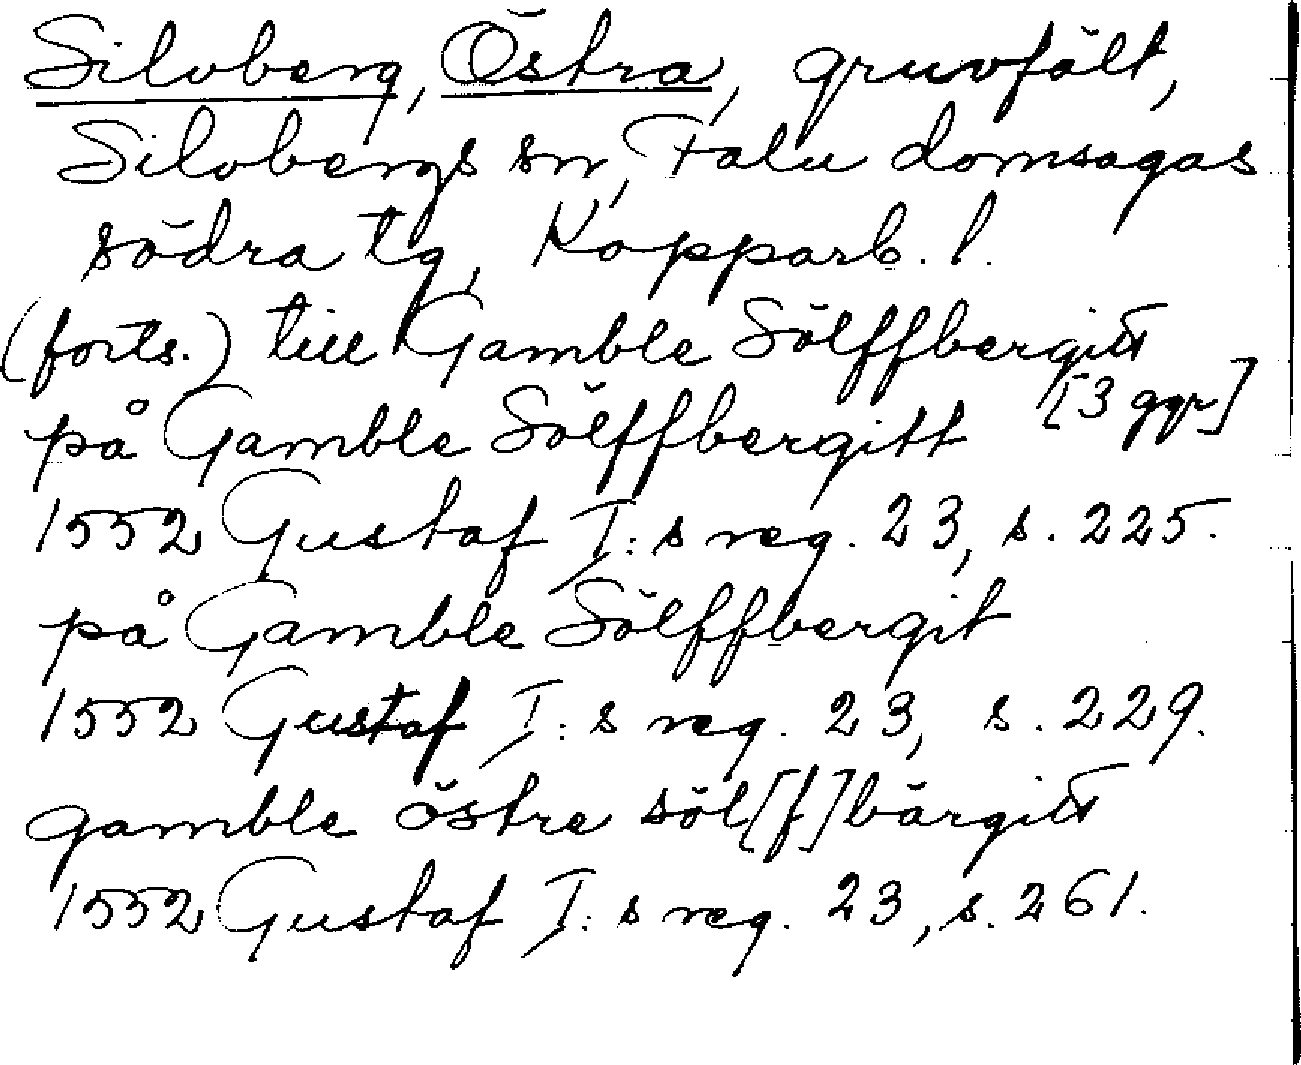 Silvberg, Östra, gruvfält,
Silvbergs sn, Falu domsagas
södra tg, Kopparb. l.
(forts.) till Gamble Sölffbergitt
på Gamble Sölffbergitt [3 ggr]
1552 Gustaf I:s reg. 23, s. 225.
på Gamble Sölffbergit
1552 Gustaf I:s reg. 23, s. 229.
gamble östre söl[f]bärgitt
1552 Gustaf I:s reg. 23, s. 261.